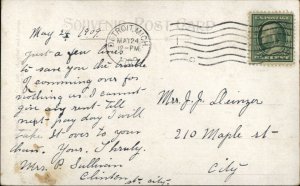 SOUVENIR POST CARD
DETROIT, MICH.
MAY 24
12-PM
May 24 1909
Just a few lines
to save you the trouble
of comming over for
nothing as I cannot
give any rent till
next pay day I will
take it over to your
Yours, Truly,
Mrs. P. Sullivan
Clinton st city.
Mrs J. J.
210 Maple st
City